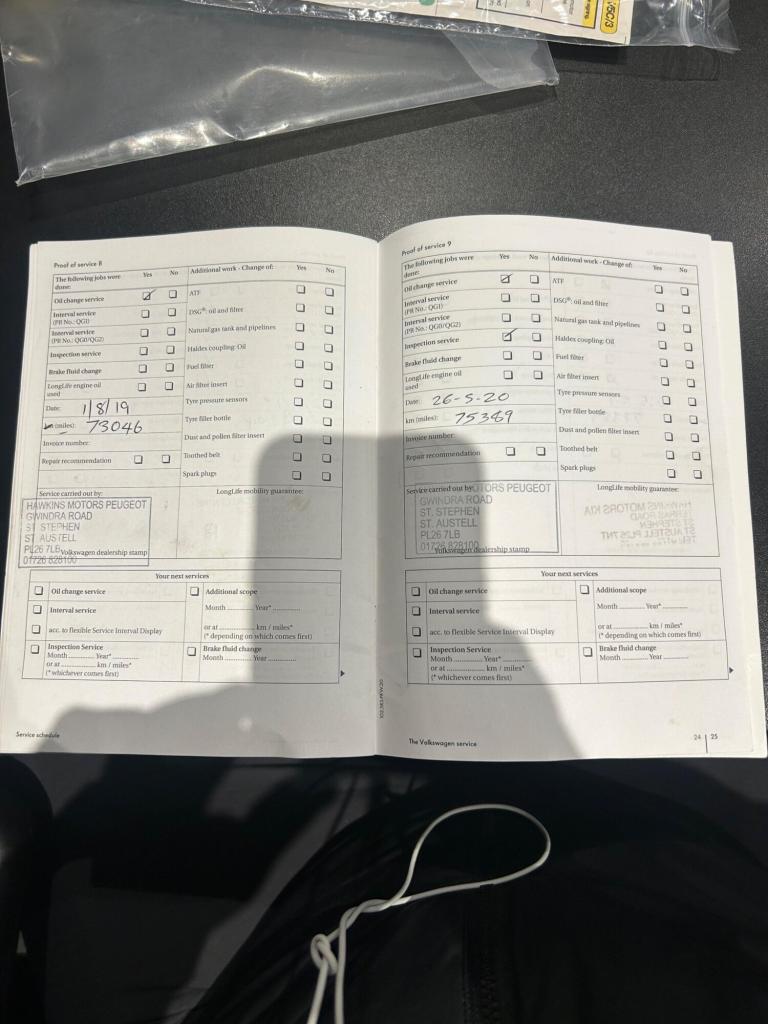 V5C/3
Proof of service 8
The following jobs were done: Yes No
Oil change service
Interval service
(PR No.: QG1)
Interval service
(PR No.: QG0/QG2)
Inspection service
Brake fluid change
LongLife engine oil used
Date: 1/8/19
km (miles): 73046
Invoice number:
Repair recommendation
Additional work - Change of: Yes No
ATF
DSG®: oil and filter
Natural gas tank and pipelines
Haldex coupling: Oil
Fuel filter
Air filter insert
Tyre pressure sensors
Tyre filler bottle
Dust and pollen filter insert
Toothed belt
Spark plugs
Service carried out by:
HAWKINS MOTORS PEUGEOT
GWINDRA ROAD
ST STEPHEN
ST AUSTELL
PL26 7LB
01726 828100
Volkswagen dealership stamp
LongLife mobility guarantee:
Your next services
Oil change service
Interval service
acc. to flexible Service Interval Display
Inspection Service
Month Year*
or at km / miles*
(* whichever comes first)
Additional scope
Month Year*
or at km / miles*
(* depending on which comes first)
Brake fluid change
Month Year
Service schedule
Proof of service 9
The following jobs were done: Yes No
Oil change service
Interval service
(PR No.: QG1)
Interval service
(PR No.: QG0/QG2)
Inspection service
Brake fluid change
LongLife engine oil used
Date: 26-5-20
km (miles): 75389
Invoice number:
Repair recommendation
Additional work - Change of: Yes No
ATF
DSG®: oil and filter
Natural gas tank and pipelines
Haldex coupling: Oil
Fuel filter
Air filter insert
Tyre pressure sensors
Tyre filler bottle
Dust and pollen filter insert
Toothed belt
Spark plugs
Service carried out by:
TORS PEUGEOT
GWINDRA ROAD
ST. STEPHEN
ST. AUSTELL
PL26 7LB
01726 828100
Volkswagen dealership stamp
LongLife mobility guarantee:
Your next services
Oil change service
Interval service
acc. to flexible Service Interval Display
Inspection Service
Month Year*
or at km / miles*
(* whichever comes first)
Additional scope
Month Year*
or at km / miles*
(* depending on which comes first)
Brake fluid change
Month Year
The Volkswagen service
24 | 25